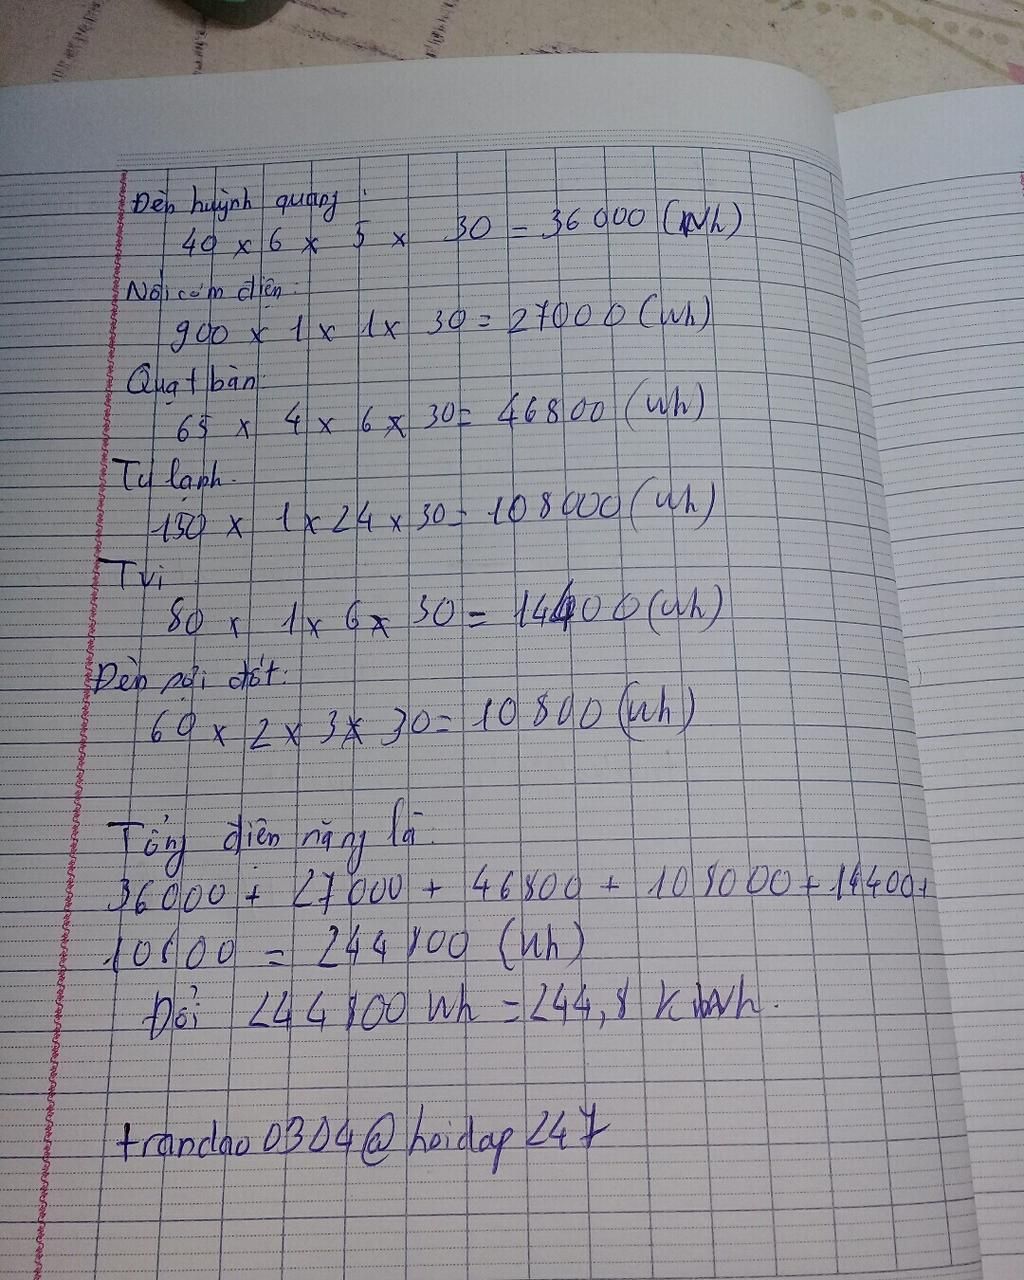 Đèn huỳnh quang:
40 x 6 x 5 x 30 = 36000 (Wh)
Nồi cơm điện:
900 x 1 x 1 x 30 = 27000 (Wh)
Quạt bàn:
65 x 4 x 6 x 30 = 46800 (Wh)
Tủ lạnh.
150 x 1 x 24 x 30 = 108000 (Wh)
Tvi
80 x 1 x 6 x 30 = 14400 (Wh)
Đèn sợi đốt:
60 x 2 x 3 x 30 = 10800 (Wh)
Tổng điện năng là:
36000 + 27000 + 46800 + 108000 + 14400 +
10800 = 244800 (Wh)
Đổi 244800 Wh = 244,8 kWh.
trandao0304@hoidap247